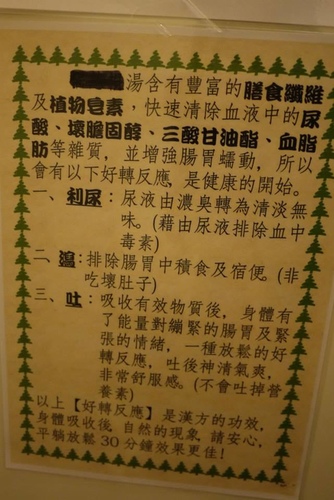 湯含有豐富的膳食纖維
及植物皂素，快速清除血液中的尿
酸、壞膽固醇、三酸甘油酯、血脂
肪等雜質，並增強腸胃蠕動，所以
會有以下好轉反應，是健康的開始。
一、利尿：尿液由濃臭轉為清淡無
味。(藉由尿液排除血中
毒素)
二、瀉：排除腸胃中積食及宿便。(非
吃壞肚子)
三、吐：吸收有效物質後，身體有
了能量對繃緊的腸胃及緊
張的情緒，一種放鬆的好
轉反應，吐後神清氣爽，
非常舒服感。(不會吐掉營
養素)
以上【好轉反應】是漢方的功效，
身體吸收後，自然的現象，請安心，
平躺放鬆30分鐘效果更佳！